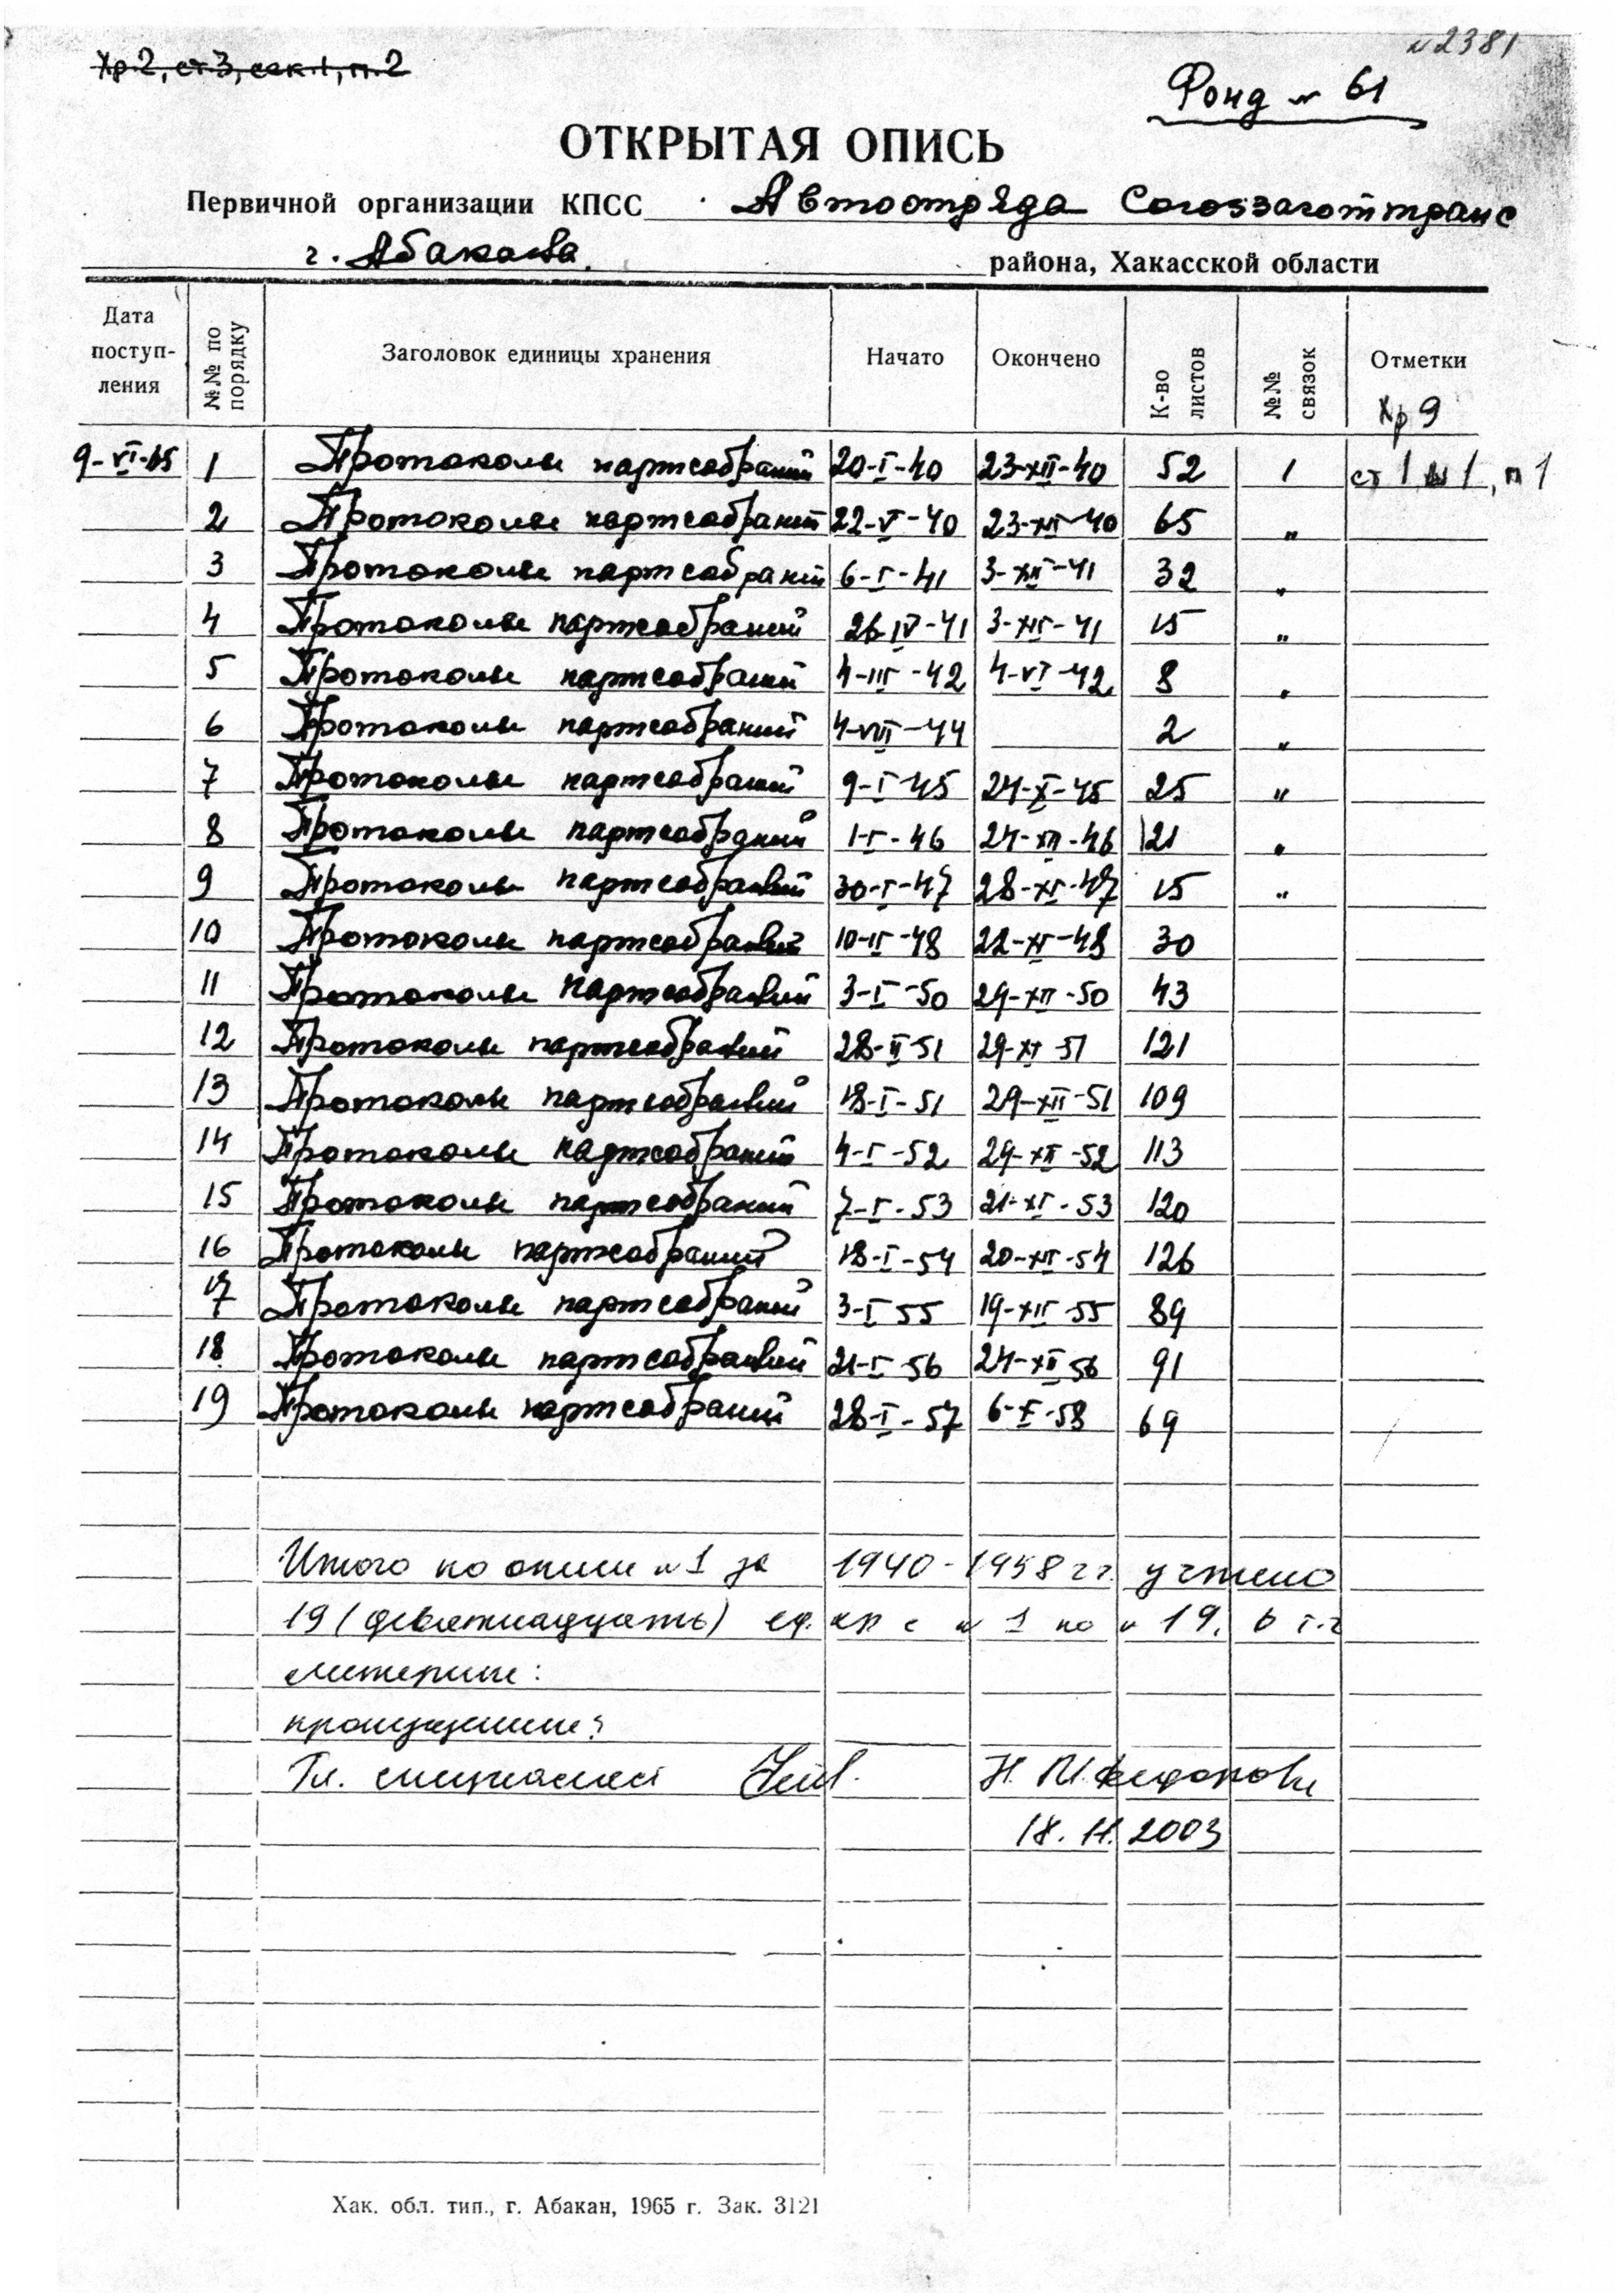 №2381
Хр.2, ст3, сек.1, п.2
Фонд № 61
ОТКРЫТАЯ ОПИСЬ
Первичной организации КПСС Автоотряда Союззаготтранс
г. Абакана. района, Хакасской области
Дата поступ-ления №№ по порядку Заголовок единицы хранения Начато Окончено К-во листов №№ связок Отметки
Хр 9
9-VI-65 1 Протоколы партсобраний 20-I-40 23-XII-40 52 1 ст 1 1, п 1
2 Протоколы партсобраний 22-V-40 23-XII-40 65 "
3 Протоколы партсобраний 6-I-41 3-XII-41 32 "
4 Протоколы партсобраний 26-IV-41 3-XII-41 15 "
5 Протоколы партсобраний 4-III-42 4-VI-42 8 "
6 Протоколы партсобраний 4-VIII-44 2 "
7 Протоколы партсобраний 9-I-45 24-X-45 25 "
8 Протоколы партсобраний 1-I-46 24-XII-46 21 "
9 Протоколы партсобраний 30-I-47 28-XI-47 15 "
10 Протоколы партсобраний 10-II-48 22-XI-48 30
11 Протоколы партсобраний 3-I-50 29-XII-50 43
12 Протоколы партсобраний 28-II-51 29-XI-51 121
13 Протоколы партсобраний 18-I-51 29-XII-51 109
14 Протоколы партсобраний 4-I-52 29-XII-52 113
15 Протоколы партсобраний 7-I-53 21-XI-53 120
16 Протоколы партсобраний 18-I-54 20-XII-54 126
17 Протоколы партсобраний 3-I 55 19-XII-55 89
18 Протоколы партсобраний 21-I-56 24-XII 56 91
19 Протоколы партсобраний 28-I-57 6-X-58 69
Итого по описи №1 за 1940-1958 гг. учтено
19 (девятнадцать) ед. хр с № 1 по № 19, в т.ч
литерные:
пропущенные:
Гл. специалист Н. М. Федорова
18. 11. 2003
Хак. обл. тип., г. Абакан, 1965 г. Зак. 3121